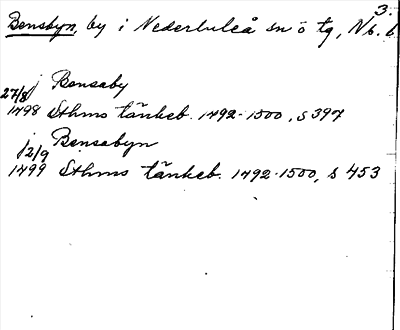 3.
Bensbyn, by i Nederluleå sn o tg, Nb. b
j Bensaby
27/8
1498 Sthms tänkeb. 1492-1500, s 397
j Bensabyn
12/9
1499 Sthms tänkeb. 1492-1500, s 453